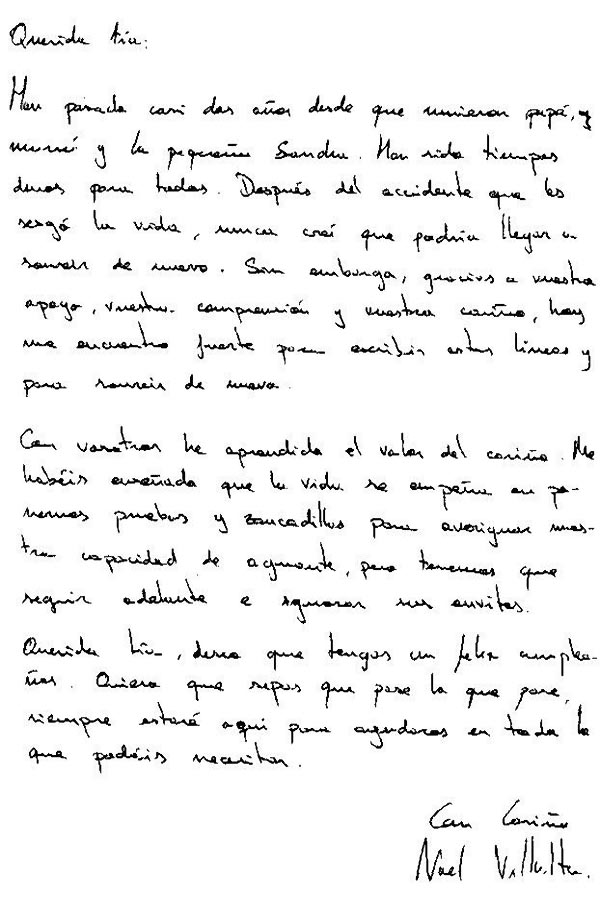 Querida tía:
Han pasado casi dos años desde que murieron papá, y
mamá y la pequeña Sandra. Han sido tiempos
duros para todos. Después del accidente que les
segó la vida, nunca creí que podría llegar a
sonreir de nuevo. Sin embargo, gracias a vuestro
apoyo, vuestra comprensión y vuestro cariño, hoy
me encuentro fuerte para escribir estas líneas y
para sonreir de nuevo.
Con vosotros he aprendido el valor del cariño. Me
habéis enseñado que la vida se empeña en po-
nernos pruebas y zancadillas para averiguar nues-
tra capacidad de aguante, pero tenemos que
seguir adelante e ignorar sus envites.
Querida tía, deseo que tengas un feliz cumplea-
ños. Quiero que sepas que pase lo que pase,
siempre estaré aquí para ayudaros en todo lo
que podáis necesitar.
Con Cariño
Noel Villalta.